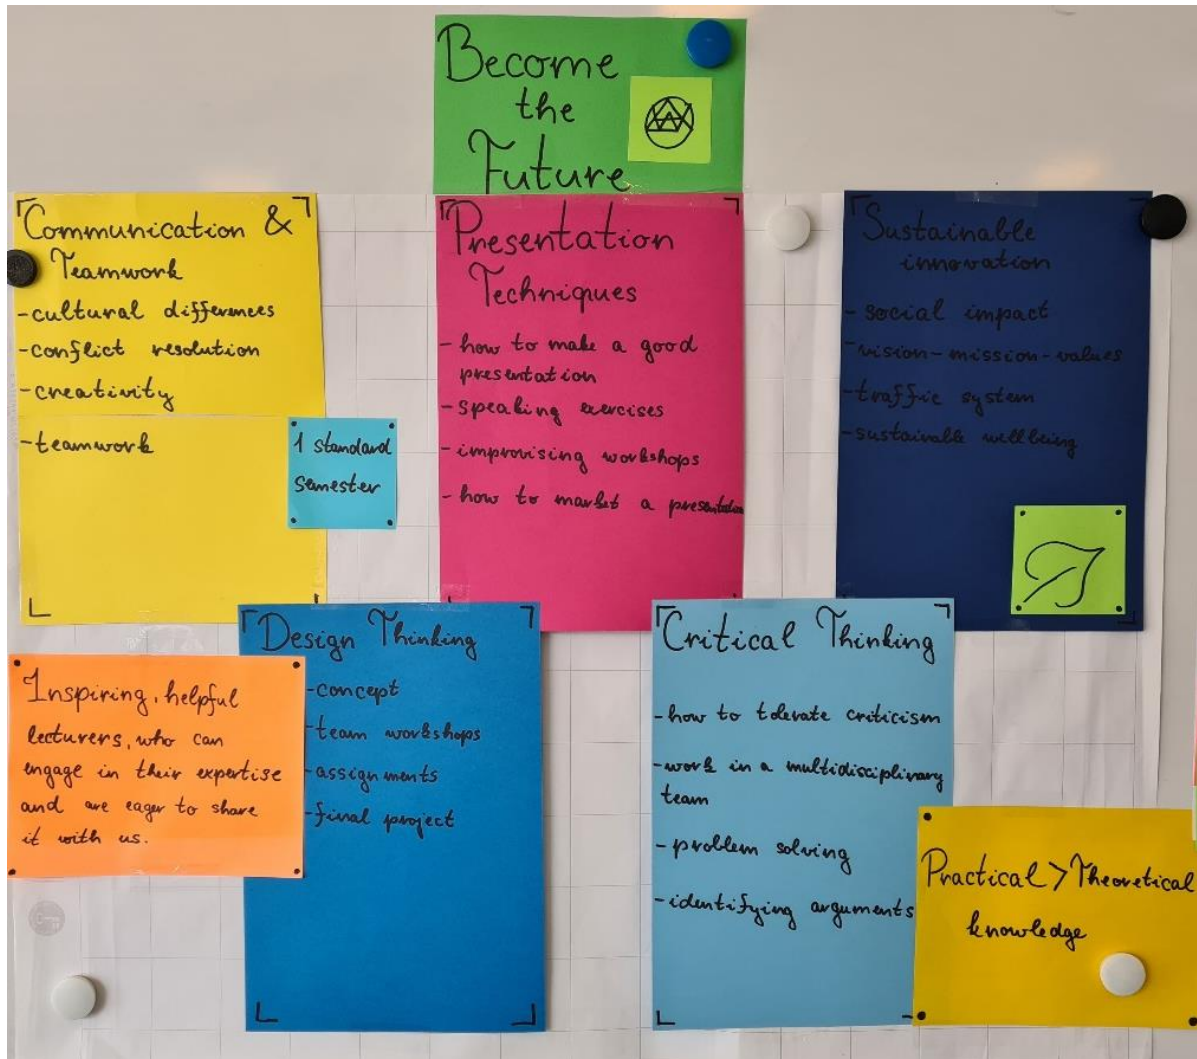 Become
the
Future
Communication &
Teamwork
-cultural differences
-conflict resolution
-creativity
-teamwork
1 standard
semester
Presentation
Techniques
- how to make a good
presentation
- speaking exercises
- improvising workshops
- how to market a presentation
Sustainable
innovation
- social impact
- vision-mission-values
- traffic system
- sustainable wellbeing
Inspiring, helpful
lecturers, who can
engage in their expertise
and are eager to share
it with us.
Design Thinking
-concept
-team workshops
-assignments
-final project
Critical Thinking
-how to tolerate criticism
-work in a multidisciplinary
team
-problem solving
-identifying arguments
Practical > Theoretical
knowledge